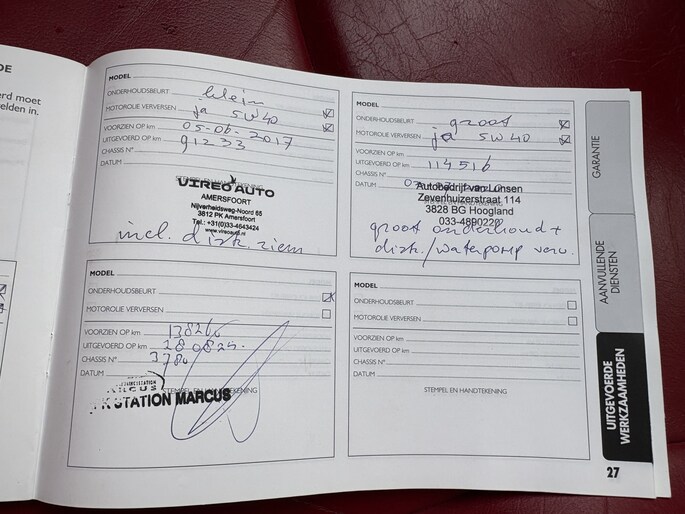 DE
erd moet
elden in.
MODEL
ONDERHOUDSBEURT klein
MOTOROLIE VERVERSEN ja 5W40
VOORZIEN OP km 05-06-2017
UITGEVOERD OP km 91233
CHASSIS N°
DATUM
STEMPEL EN HANDTEKENING
VIREO AUTO
AMERSFOORT
Nijverheidsweg-Noord 65
3812 PK Amersfoort
Tel.: +31(0)33-4643424
www.vireoauto.nl
incl. distr. riem
MODEL
ONDERHOUDSBEURT groot
MOTOROLIE VERVERSEN ja 5W40
VOORZIEN OP km
UITGEVOERD OP km 114516
CHASSIS N°
DATUM
Autobedrijf van Lunsen
Zevenhuizerstraat 114
3828 BG Hoogland
033-4890222
groot onderhoud +
distr./waterpomp verv.
MODEL
ONDERHOUDSBEURT
MOTOROLIE VERVERSEN
VOORZIEN OP km 138260
UITGEVOERD OP km 280825.
CHASSIS N° 3780
DATUM
STEMPEL EN HANDTEKENING
STATION MARCUS
MODEL
ONDERHOUDSBEURT
MOTOROLIE VERVERSEN
VOORZIEN OP km
UITGEVOERD OP km
CHASSIS N°
DATUM
STEMPEL EN HANDTEKENING
GARANTIE
AANVULLENDE
DIENSTEN
UITGEVOERDE
WERKZAAMHEDEN
27